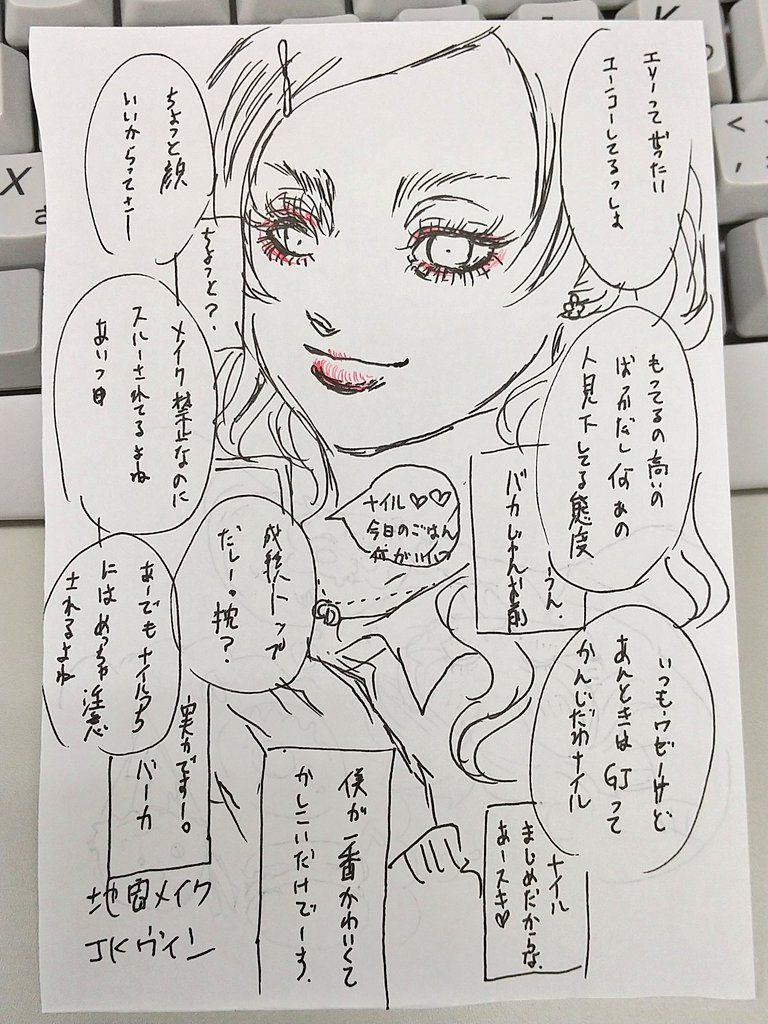 エリーってぜったい
エーコーしてるっしょ
もってるの高いの
ばっかだし何あの
人見下してる態度
うん。
バカじゃんお前
いつもウゼーけど
あんときはGJって
かんじだわナイル
ナイル
まじめだからな
あースキ♡
ちょっと顔
いいからってさー
ちょっと?
メイク禁止なのに
スルーされてるよね
あいつ目
ナイル♡♡
今日のごはん
何がいい
成績トップ
だしー。枕?
あーでもナイル
にはめっちゃ注意
されるよね
実力ですー。
バーカ
僕が一番かわいくて
かしこいだけでーす.
地雷メイク
JKヴィン
X
K